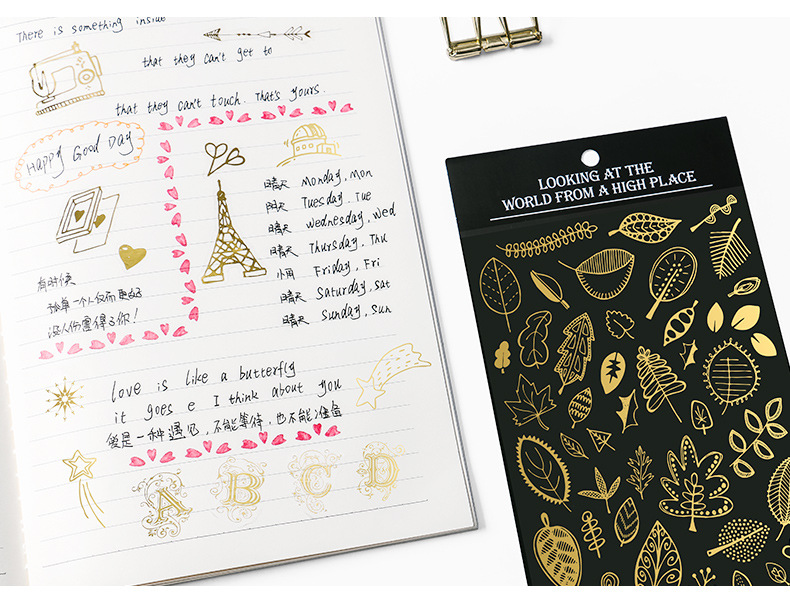 There is something inside
that they can't get to
that they can't touch. That's yours.
Happy Good Day
晴天 Monday, Mon
阴天 Tuesday, Tue
晴天 Wednesday, Wed
晴天 Thursday, Thu
小雨 Friday, Fri
晴天 Saturday, Sat
晴天 Sunday, Sun
有时候
一个人
没人
你!
love is like a butterfly
it goes e I think about you
爱是一种遇见,不能等待,也不能准备
A B C D
LOOKING AT THE
WORLD FROM A HIGH PLACE